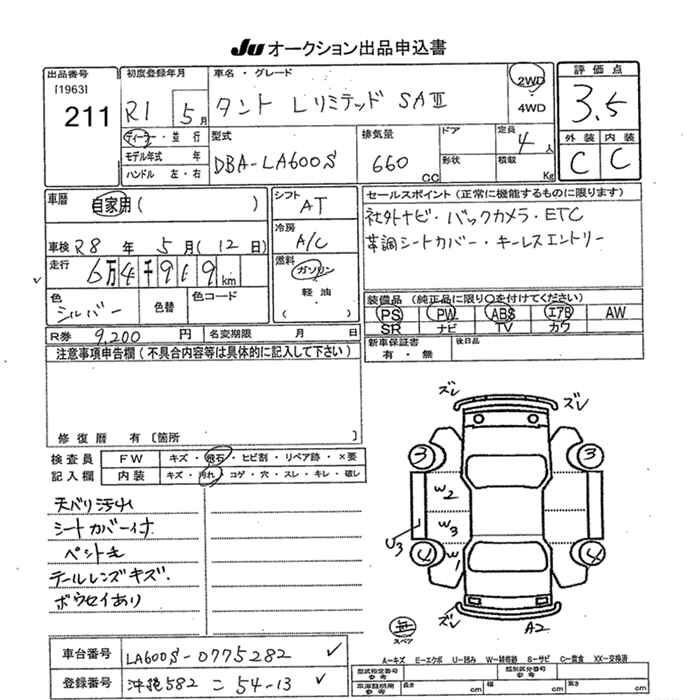 JU オークション出品申込書
出品番号
[1963]
211
初度登録年月
R1 5月
ディーラー・並行
モデル年式 年
ハンドル 左・右
車名・グレード
タント Lリミテッド SAⅢ
2WD
4WD
型式
DBA-LA600S
排気量
660 CC
ドア
形状
定員
4人
積載 Kg
評価点
3.5
外装 内装
C C
車歴
自家用( )
車検 R8 年 5 月(12 日)
走行 6万4千919km
色
シルバー
色替
色コード
R券 9,200 円
名変期限 月 日
シフト
AT
冷房
A/C
燃料
ガソリン
軽油
( )
セールスポイント(正常に機能するものに限ります)
社外ナビ・バックカメラ・ETC
革調シートカバー・キーレスエントリー
装備品(純正品に限り○を付けてください)
PS PW ABS エアB AW
SR ナビ TV カワ
新車保証書
有・無
後日品
注意事項申告欄(不具合内容等は具体的に記入して下さい)
修復歴 有 〔箇所 〕
検査員
記入欄
FW キズ・飛石・ヒビ割・リペア跡・×要
内装 キズ・汚れ・コゲ・穴・スレ・キレ・破レ
天バリ汚れ
シートカバー付
ペット毛
テールレンズキズ.
ボウセイあり
ズレ
ズレ
3
3
W2
W3
U3
4
W1
4
ズレ
A2
無
スペア
A-キズ E-エクボ U-凹み W-補修跡 S-サビ C-腐食 XX-交換済
車台番号 LA600S-0775282
登録番号 沖縄582 こ 54-13
型式指定番号
参考
類別区分番号
参考
車庫証明用
参考
長さ cm
cm
cm